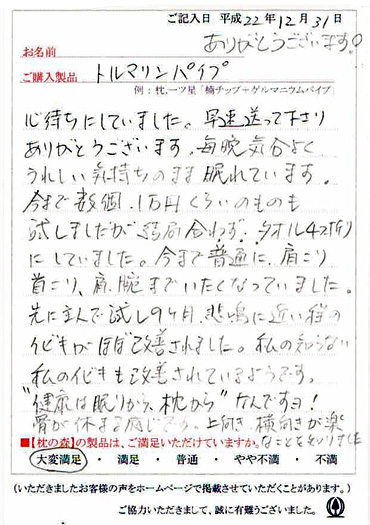 ご記入日 平成22年12月31日
ありがとうございます。
お名前
ご購入製品 トルマリンパイプ
例：枕、一ツ星「楠チップ＋ゲルマニウムパイプ」
心待ちにしていました。早速送って下さり
ありがとうございます。毎晩気分よく
うれしい気持ちのまま眠れています。
今まで数個、1万円くらいのものも
試しましたが結局合わず、タオル4つ折り
にしていました。今まで普通に、肩こり
首こり、肩、腕までいたくなっていました。
先に主人で試し9ヶ月、悲鳴に近い程の
イビキがほぼ改善されました。私の知らない
私のイビキも改善されているようです。
"健康は眠りから、枕から"なんですョ!
骨が休まる感じです。上向き、横向きが楽
■【枕の森】の製品は、ご満足いただけていますか。なことをしりました
大変満足 ・ 満足 ・ 普通 ・ やや不満 ・ 不満
（いただきましたお客様の声をホームページで掲載させていただくことがあります。）
ご協力いただきまして、誠に有難うございました。